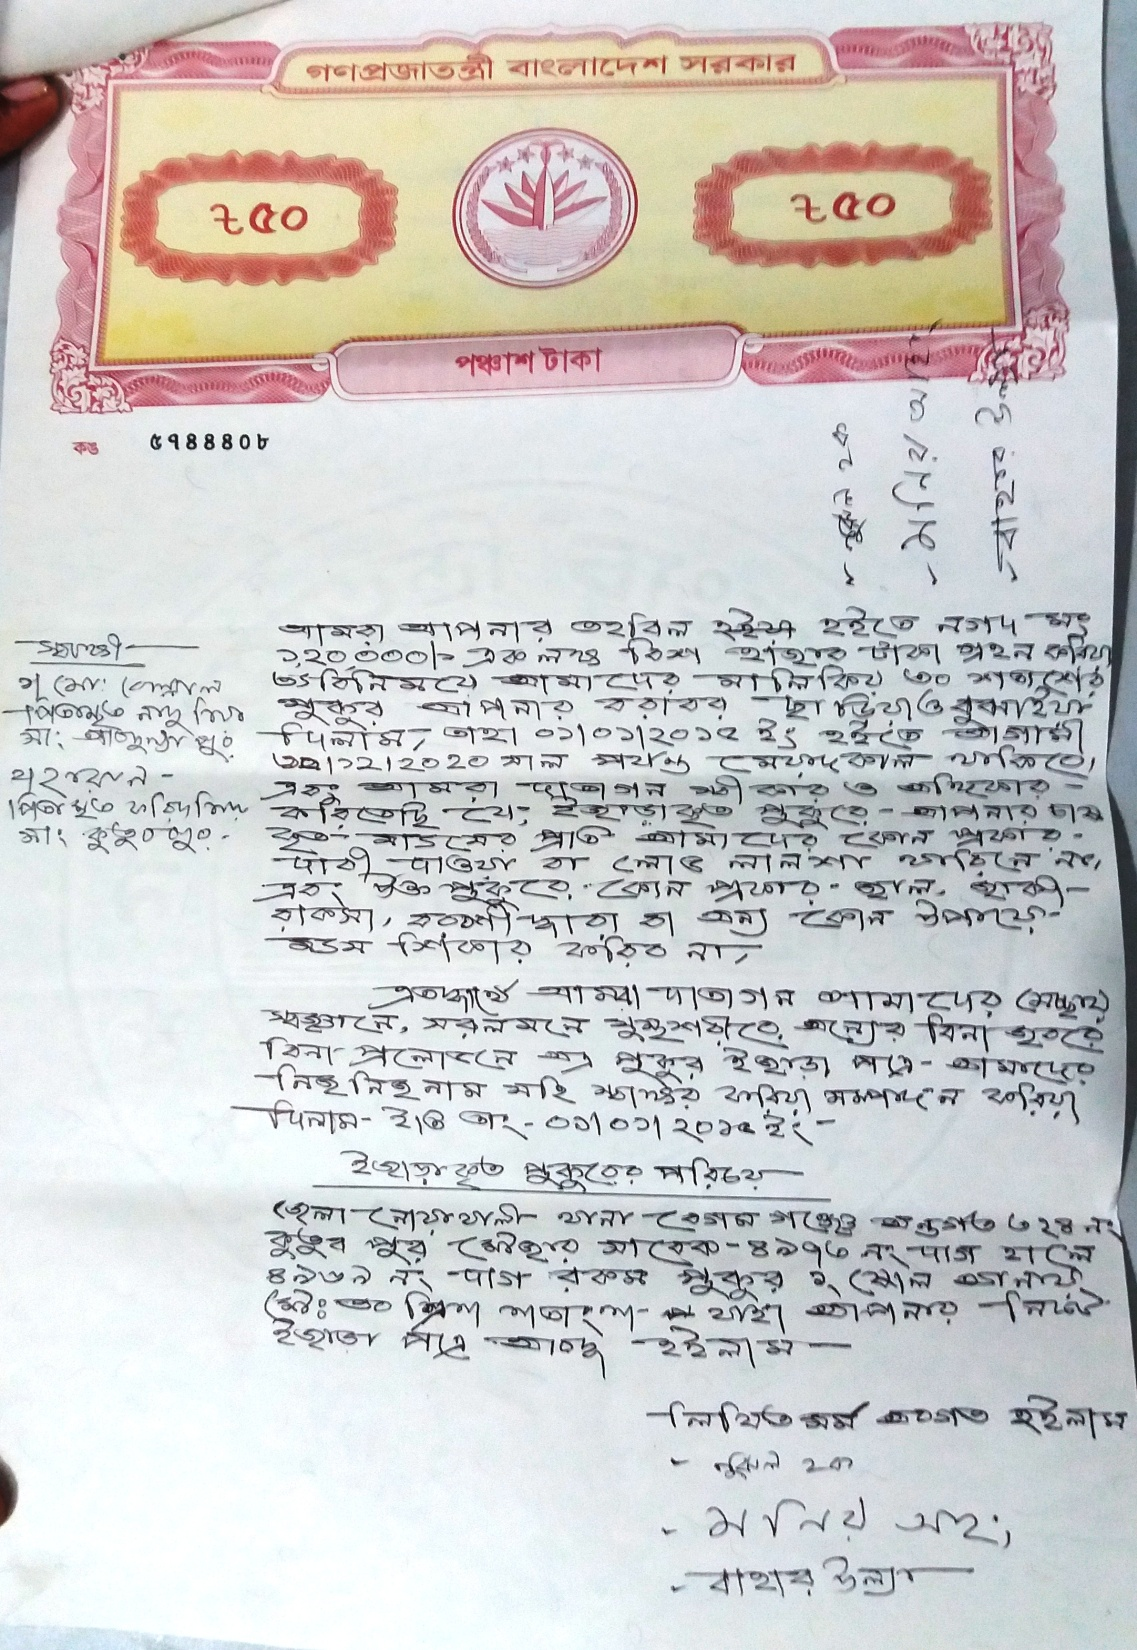 গণপ্রজাতন্ত্রী বাংলাদেশ সরকার
৳৫০
৳৫০
পঞ্চাশ টাকা
কঙ ৫৭৪৪৪০৮
মনির আহ,
বাহার উল্যা
স্বাক্ষী
আমরা আপনার তহবিল হইতে নগদ মং
১,২০,০০০/= এক লক্ষ বিশ হাজার টাকা গ্রহন করিয়া
বিনিময়ে আমাদের মালিকিয় ৩০ শতাংশের
পুকুর আপনার বরাবর ছাড়িয়া ও বুঝাইয়া
দিলাম, তাহা ০১/০১/২০১৫ ইং হইতে আগামী
৩১/১২/২০২০ সাল পর্যন্ত মেয়াদকাল থাকিবে,
এবং আমরা দাতাগন স্বীকার ও অঙ্গিকার
করিতেছি যে, ইজাড়াকৃত পুকুরে আপনার চাষ
কৃত মাছের প্রতি আমাদের কোন প্রকার
দাবী দাওয়া বা লোভ লালশা থাকিবে না,
এবং উক্ত পুকুরে কোন প্রকার জাল,
দ্বারা বা অন্য কোন উপায়ে
শিকার করিব না,
এতদ্বার্থে আমরা দাতাগন আমাদের সেচ্ছায়
স্বজ্ঞানে, সরলমনে সুস্থশরীরে অন্যের বিনা
বিনা প্রলোভনে অত্র পুকুর ইজাড়া পত্রে আমাদের
নিজ নিজ নাম সহি স্বাক্ষর করিয়া সম্পাদন করিয়া
দিলাম- ইতি তাং- ০১/০১/২০১৫ ইং-
ইজাড়াকৃত পুকুরের পরিচয়
জেলা নোয়াখালী থানা বেগমগঞ্জের অন্তর্গত ৩২৪ নং
কুতুব পুর মৌজার সাবেক- ৪৯৭৬ নং দাগ হালে
৪৯৩৯ নং দাগ রকম পুকুর ষোল আনায়
মোঃ ৩০ ত্রিশ শতাংশ- যাহা আপনার নিকট
ইজাড়া পত্রে আবদ্ধ হইলাম
লিখিত মর্ম অবগত হইলাম
- নুরুল হক
- মনির আহ,
- বাহার উল্যা